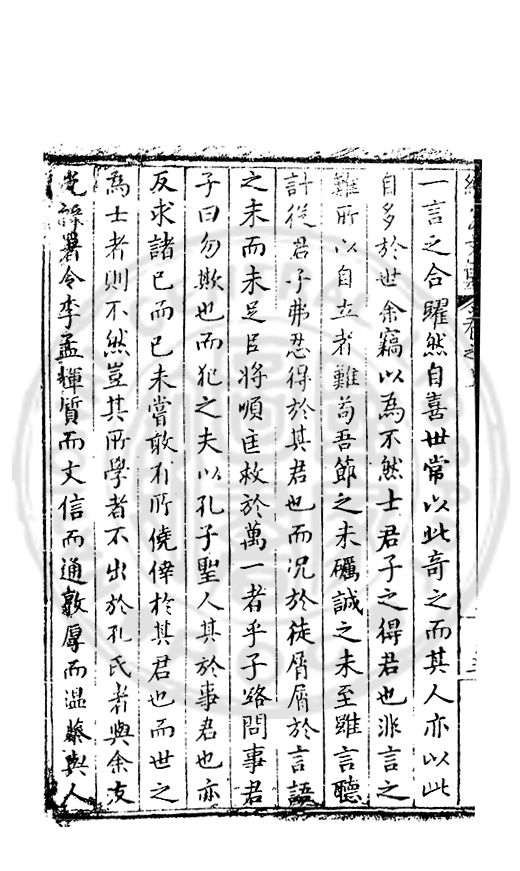 一言之合躍然自喜世常以此奇之而其人亦以此
自多於世余竊以為不然士君子之得君也非言之
難所以自立者難苟吾節之未礪誠之未至雖言聽
計從君子弗忍得於其君也而况於徒屑屑於言語
之末而未足臣將順匡救於萬一者乎子路問事君
子曰勿欺也而犯之夫以孔子聖人其於事君也亦
反求諸已而已未嘗敢有所僥倖於其君也而世之
為士者則不然豈其所學者不出於孔氏者與余友
光澤署令李孟輝質而文信而通敦厚而温粲與人